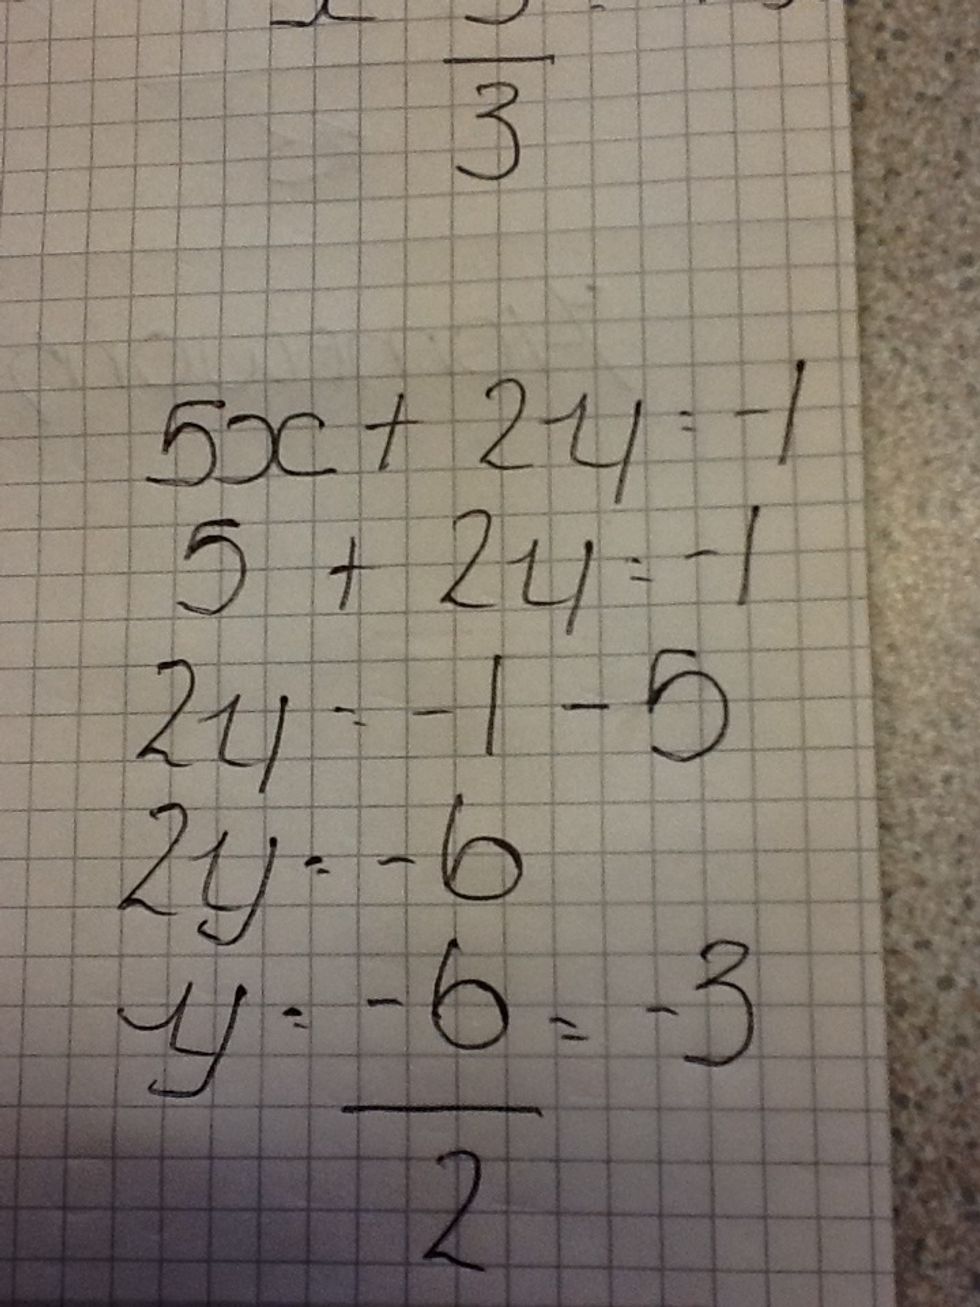 3
5x + 2y = -1
5 + 2y = -1
2y = -1 - 5
2y = -6
y = -6 = -3
2